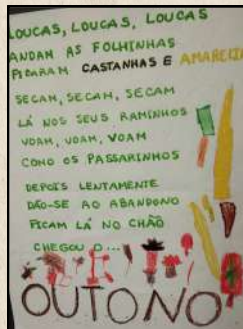 LOUCAS, LOUCAS, LOUCAS
ANDAM AS FOLHINHAS
FICARAM CASTANHAS E AMARELA
SECAM, SECAM, SECAM
LÁ NOS SEUS RAMINHOS
VOAM, VOAM, VOAM
COMO OS PASSARINHOS
DEPOIS LENTAMENTE
DÃO-SE AO ABANDONO
FICAM LÁ NO CHÃO
CHEGOU O...
OUTONO